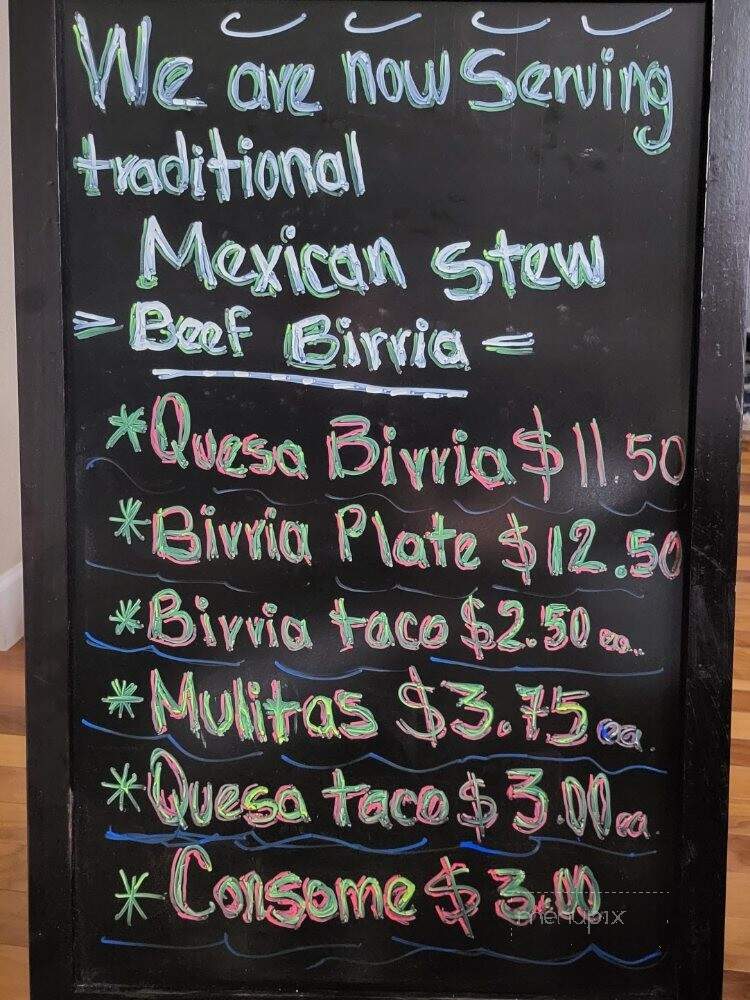 We are now Serving
traditional
Mexican stew
= Beef Birria =
*Quesa Birria $11 50
*Birria Plate $12.50
*Birria taco $2.50 ea..
*Mulitas $3.75 ea.
*Quesa taco $3.00 ea.
*Consome $3.00
menupix